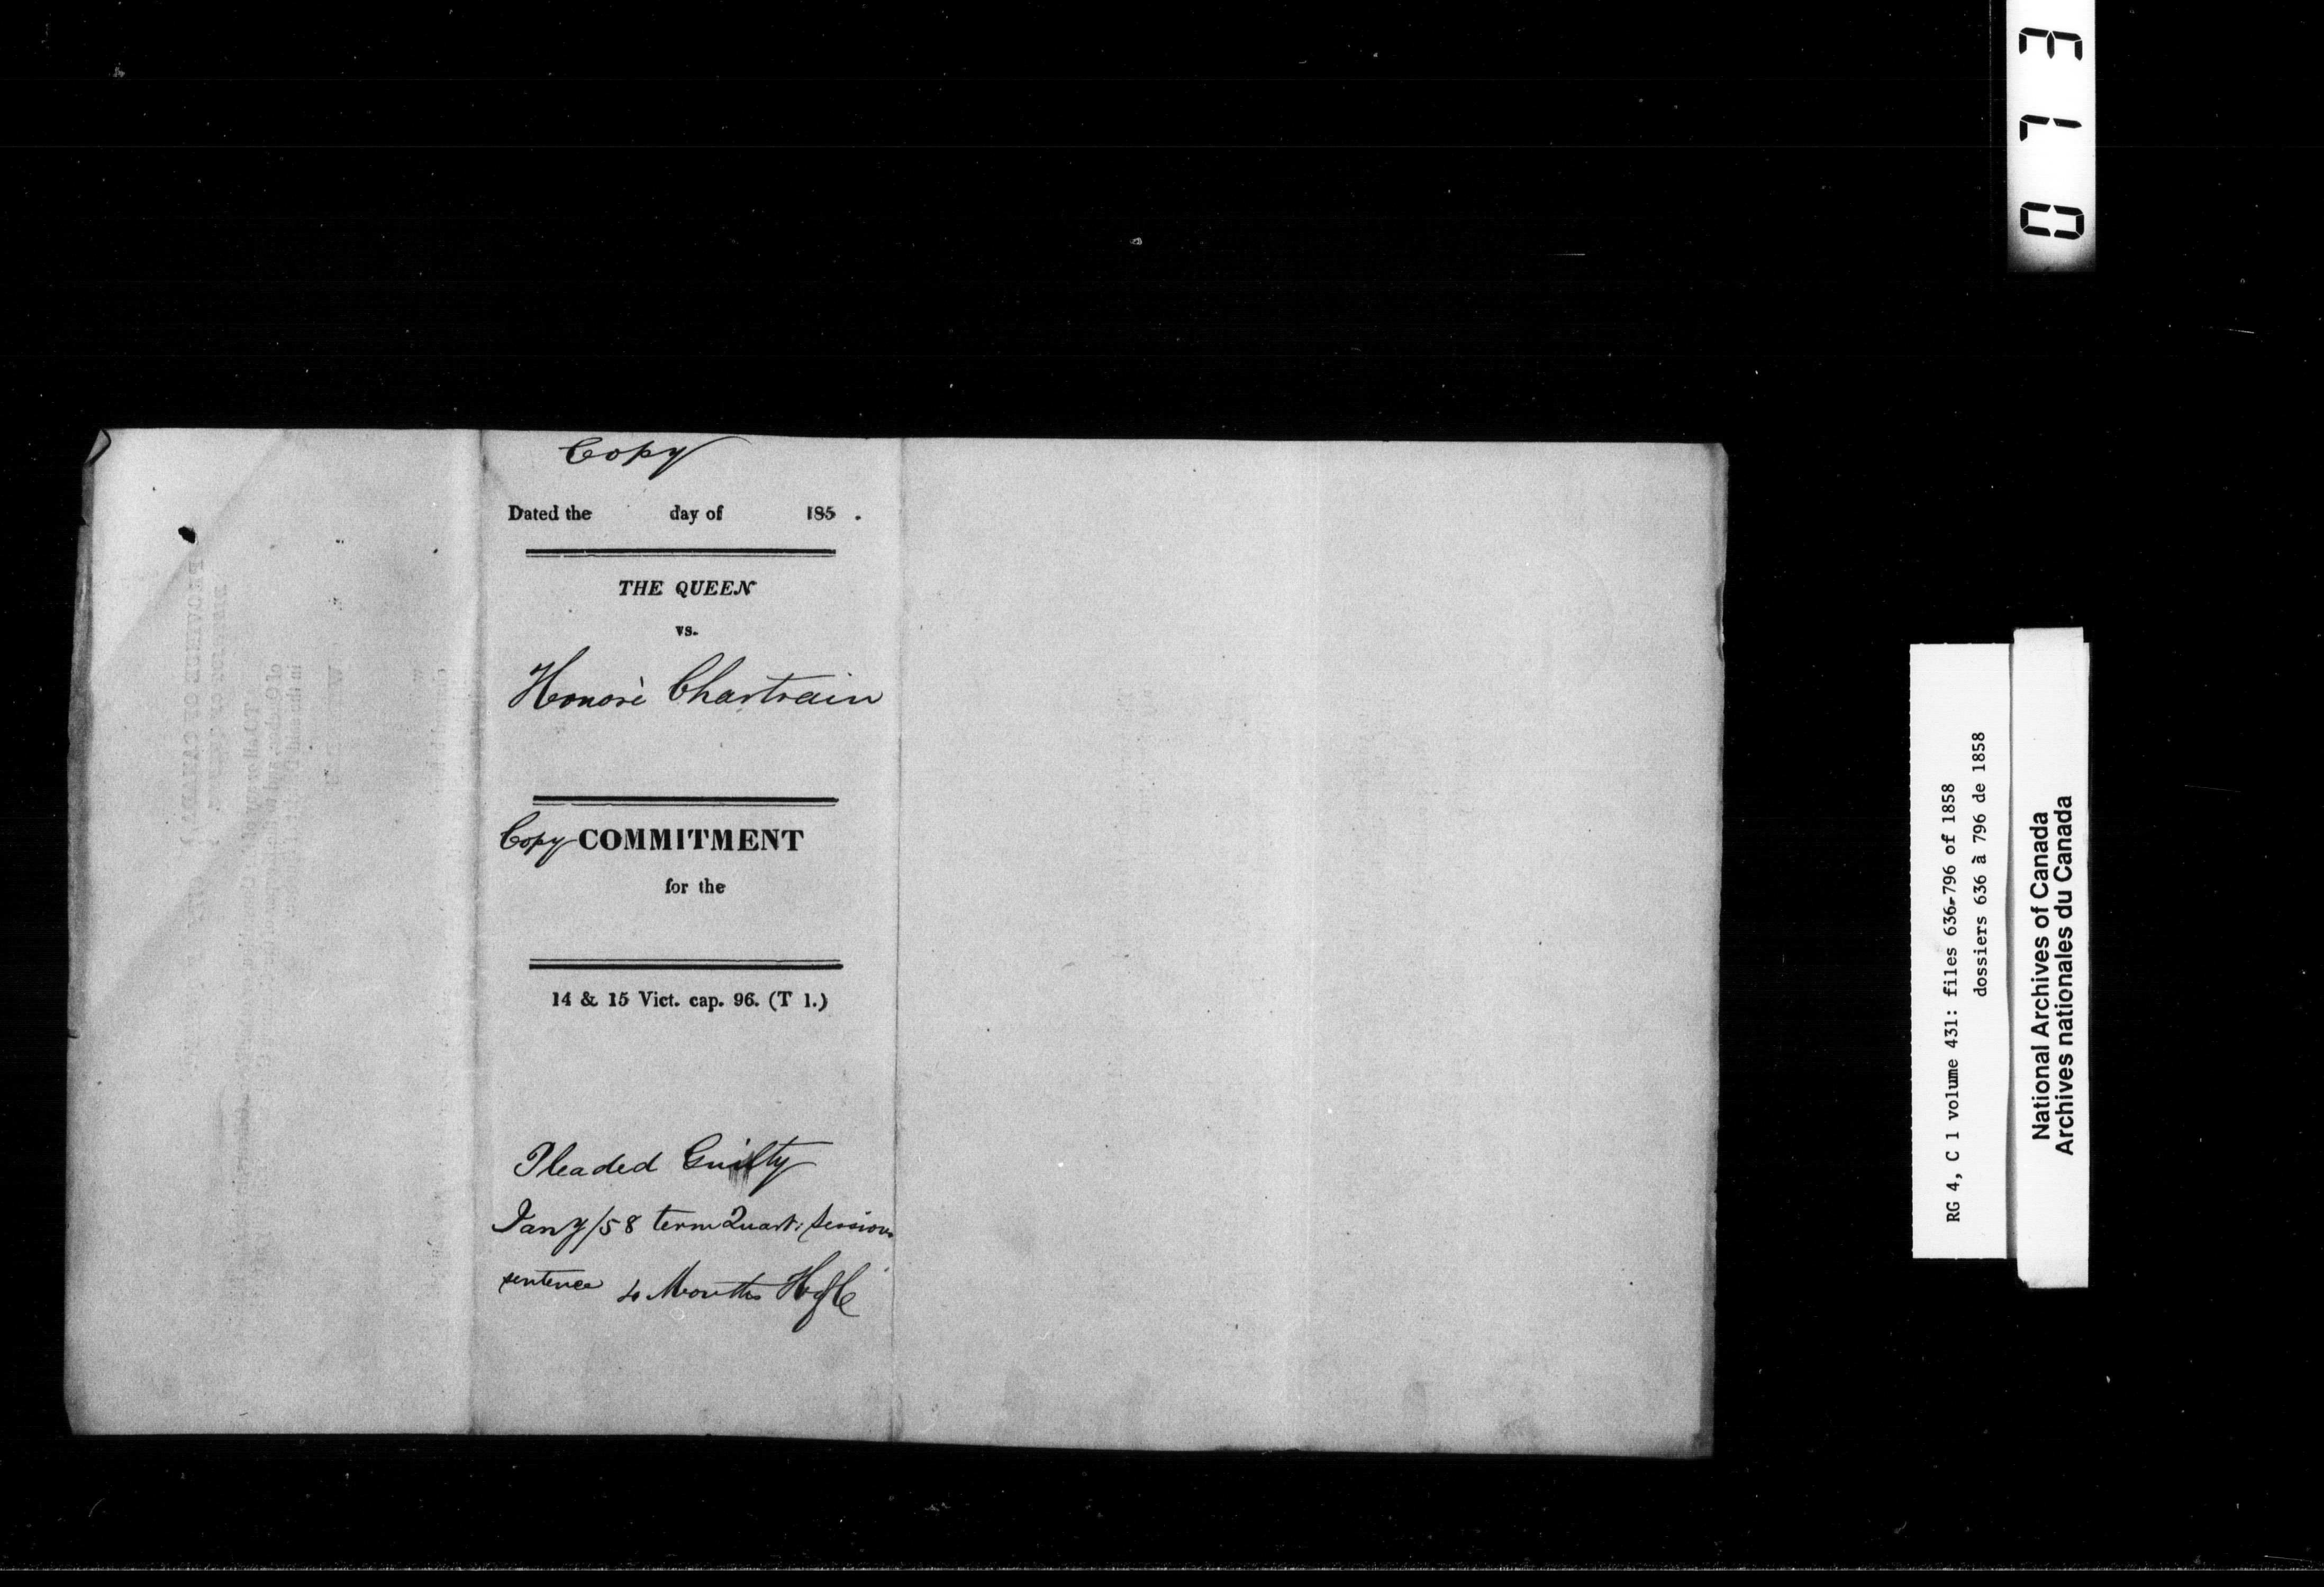 Copy
Dated the day of 185 .
THE QUEEN
vs.
Honorè Chartrain
Copy COMMITMENT
for the
14 & 15 Vict. cap. 96. (T 1.)
Pleaded Guilty
Jany/58 term Quart: Sessions
sentence 4 Months
0173
RG 4, C 1 volume 431: files 636-796 of 1858
dossiers 636 à 796 de 1858
National Archives of Canada
Archives nationales du Canada